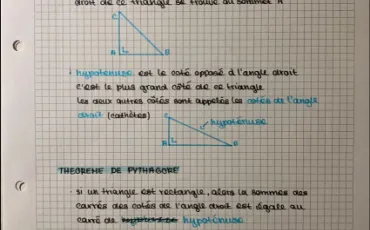 droit de ce triangle se trouve au sommet A
C
A
B
hypotenuse est le coté opposé à l'angle droit
c'est le plus grand côté de ce triangle
les deux autres côtés sont appelés les cotés de l'angle
droit (cathètes)
C
hypoténuse
A
B
THEOREME DE PYTHAGORE
• si un triangle est rectangle, alors la sommes des
carrés des cotés de l'angle droit est égale au
carré de hypoténuse